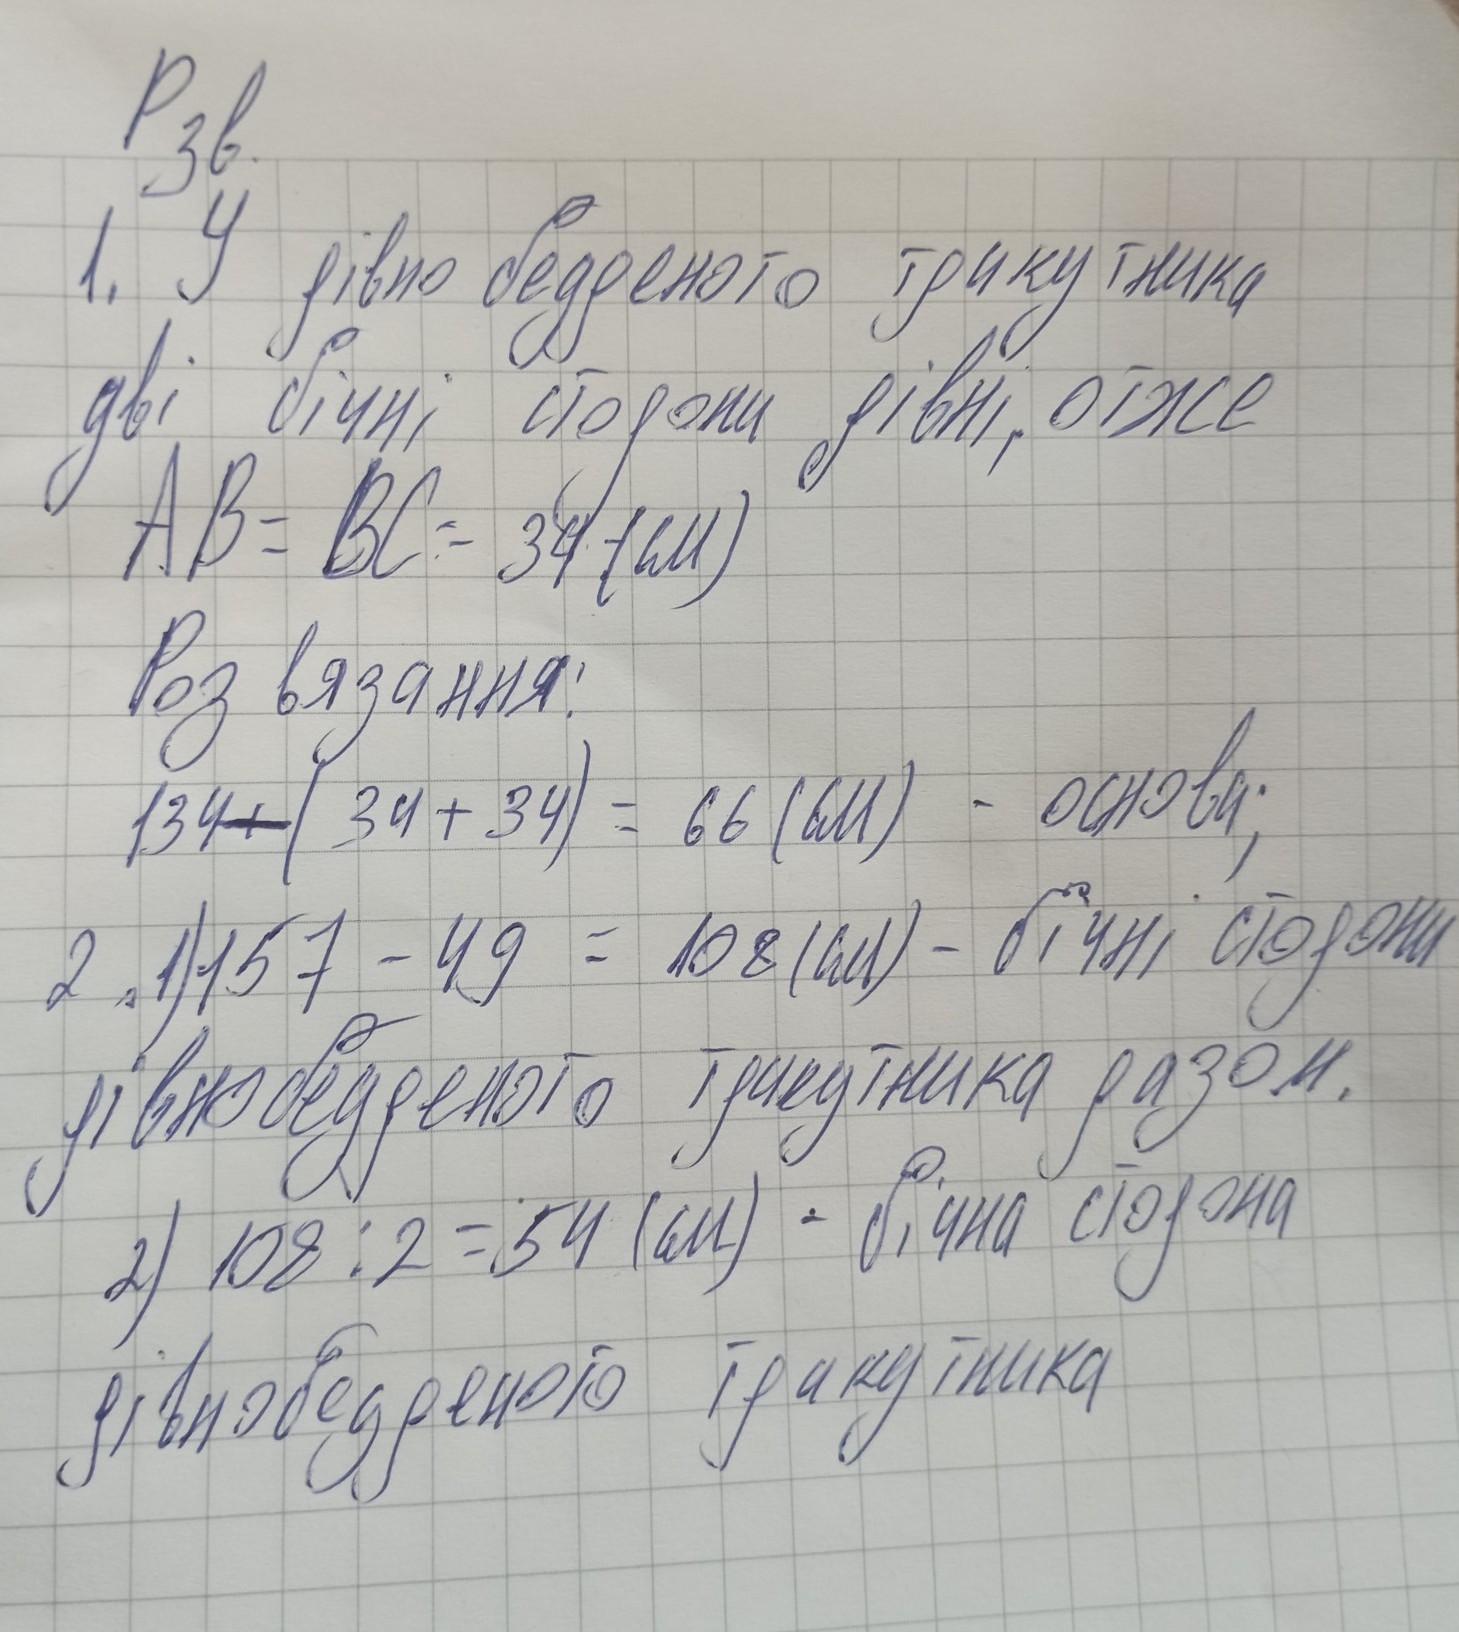 Рзв.
1. У рівнобедреного трикутника
дві бічні сторони рівні, отже
AB = BC = 34 (см)
Розвязання:
134-(34+34) = 66 (см) - основа;
2. 1) 157 - 49 = 108 (см) - бічні сторони
рівнобедреного трикутника разом.
2) 108 : 2 = 54 (см) - бічна сторона
рівнобедреного трикутника